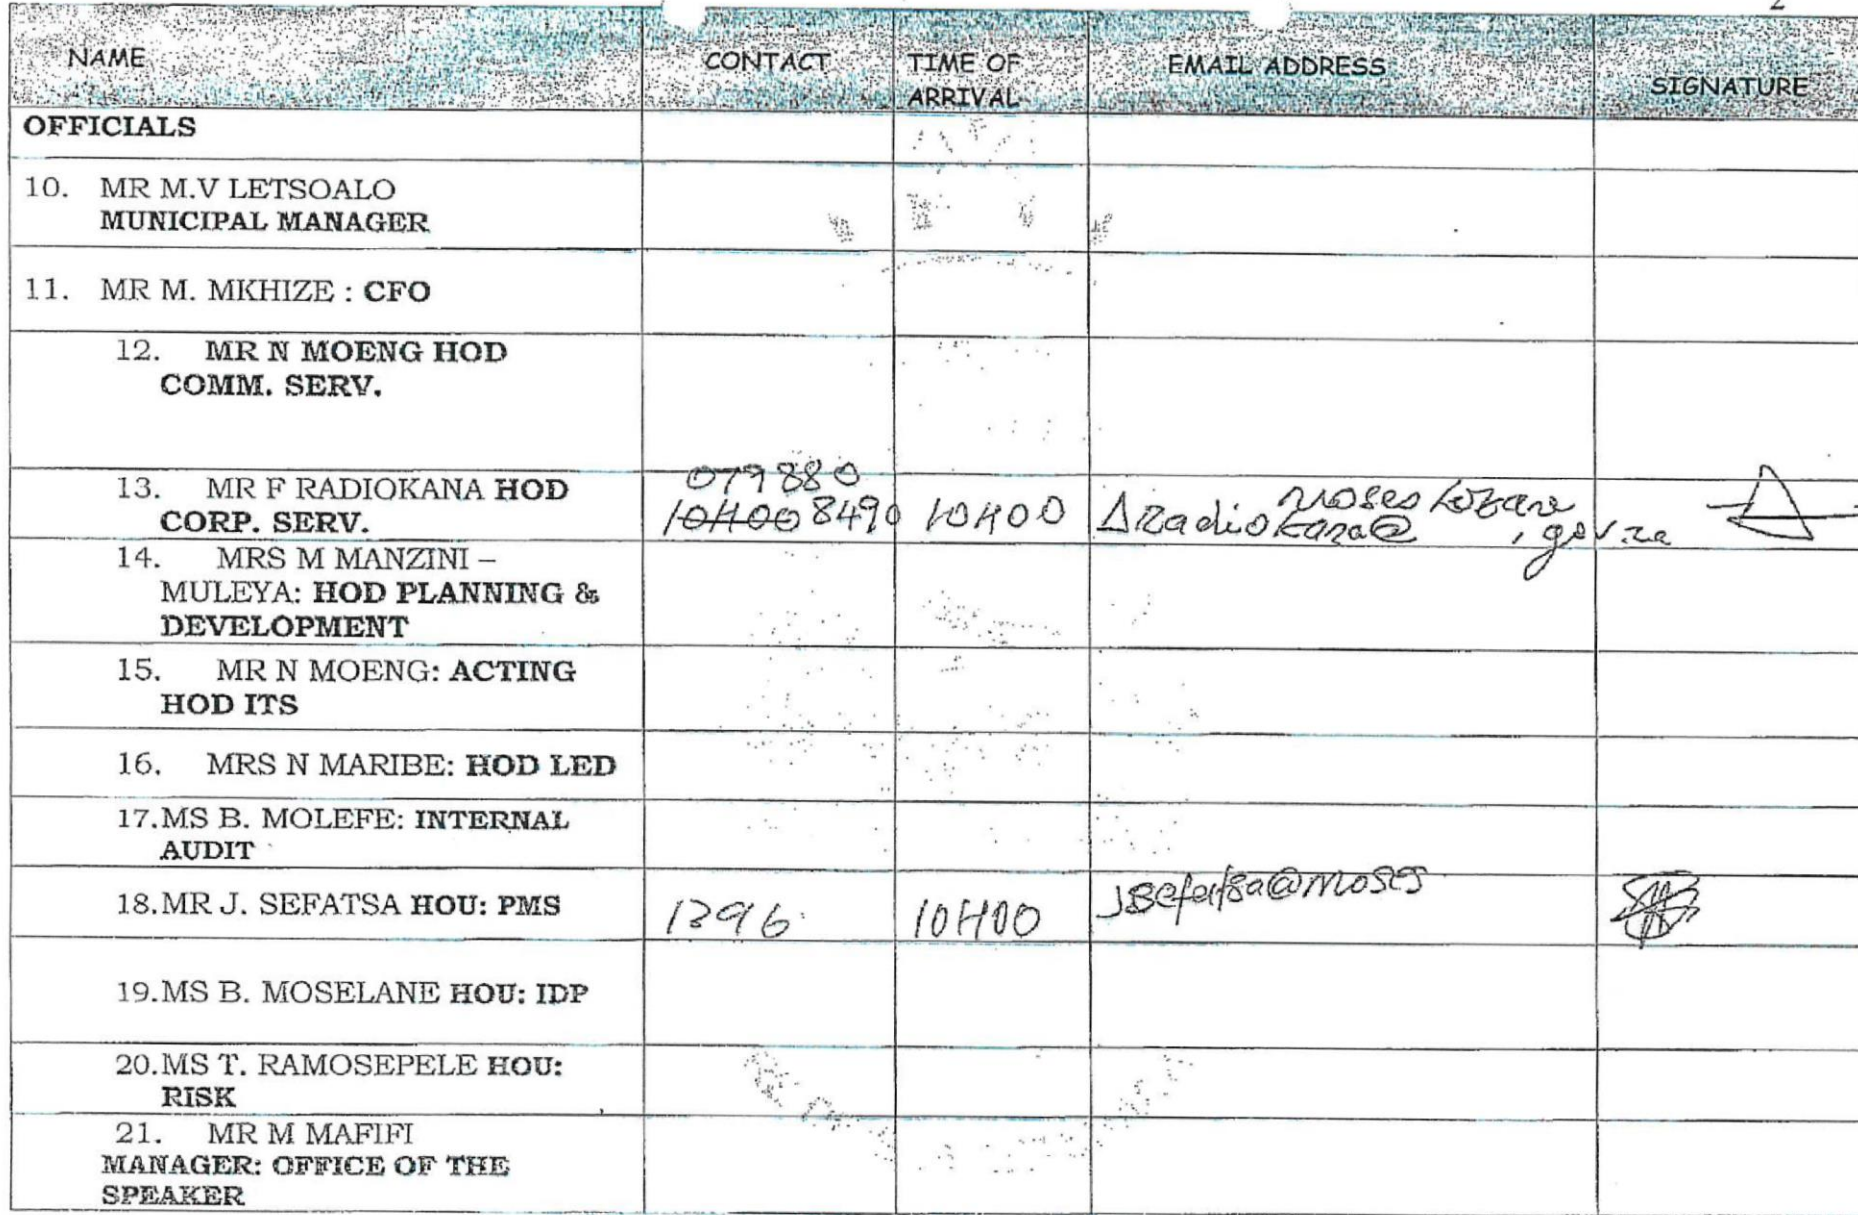 2
NAME CONTACT TIME OF ARRIVAL EMAIL ADDRESS SIGNATURE
OFFICIALS
10. MR M.V LETSOALO
MUNICIPAL MANAGER
11. MR M. MKHIZE : CFO
12. MR N MOENG HOD
COMM. SERV.
13. MR F RADIOKANA HOD
CORP. SERV.
079 880
10H00 8490 10H00 Δradiokana@ moses kotane
.gov.za
14. MRS M MANZINI –
MULEYA: HOD PLANNING &
DEVELOPMENT
15. MR N MOENG: ACTING
HOD ITS
16. MRS N MARIBE: HOD LED
17.MS B. MOLEFE: INTERNAL
AUDIT
18.MR J. SEFATSA HOU: PMS 1396 10H00 jsefatsa@moses
19.MS B. MOSELANE HOU: IDP
20.MS T. RAMOSEPELE HOU:
RISK
21. MR M MAFIFI
MANAGER: OFFICE OF THE
SPEAKER